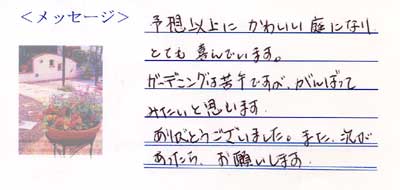 ＜メッセージ＞
予想以上に かわいい庭になり
とても 喜んでいます。
ガーデニングは苦手ですが、がんばって
みたいと思います.
ありがとうございました。また、次が
あったら、お願いします.